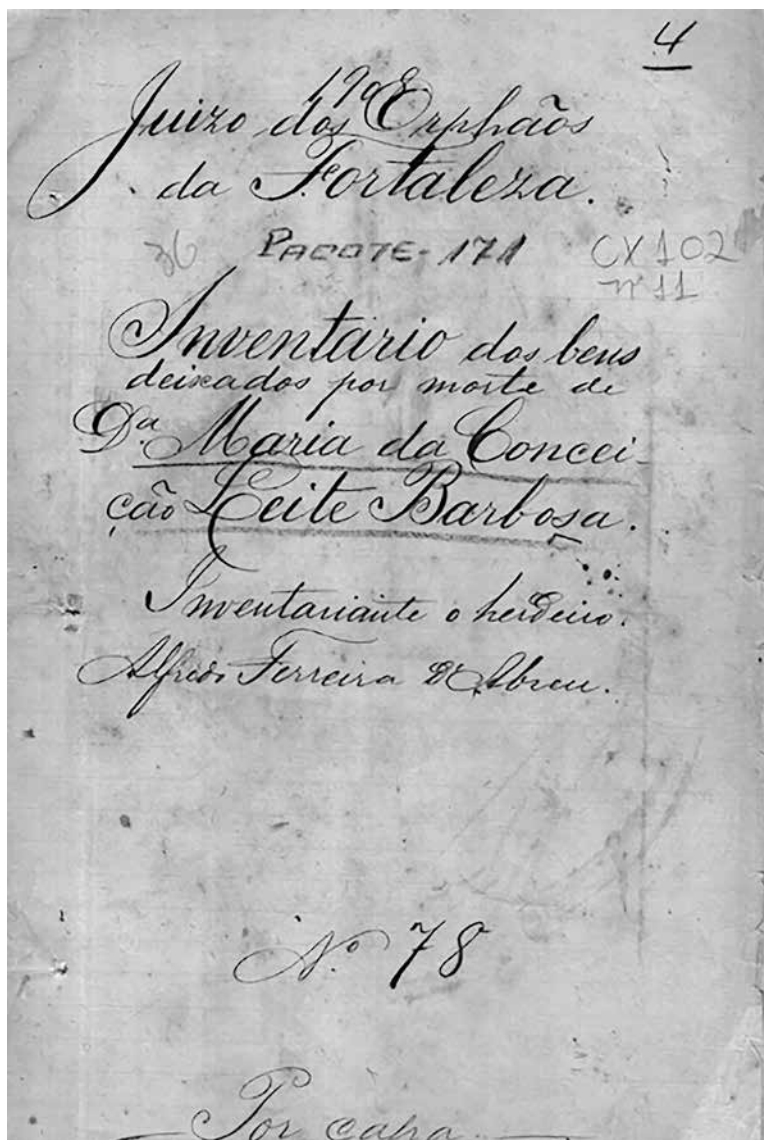 4
1908
Juizo dos Orphãos
da Fortaleza.
36 PACOTE-171 CX 102
nº 11
Inventario dos bens
deixados por morte de
Dª Maria da Concei-
ção Leite Barbosa.
Inventariante o herdeiro.
Alfredo Ferreira D'Abreu.
Nº 78
Por capa